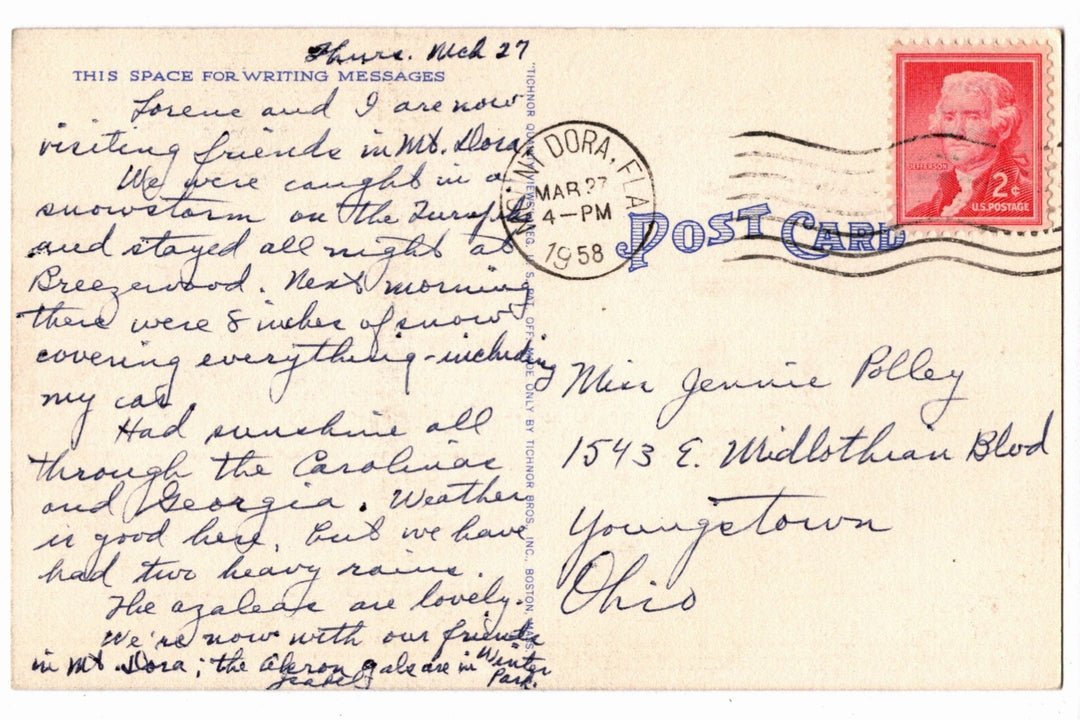 Thurs. Mch 27
THIS SPACE FOR WRITING MESSAGES
Lorene and I are now
visiting friends in Mt. Dora.
We were caught in a
snowstorm on the Turnpike
and stayed all night at
Breezewood. Next morning
there were 8 inches of snow
covering everything - including
my car.
Had sunshine all
through the Carolinas
and Georgia. Weather
is good here, but we have
had two heavy rains.
The azaleas are lovely.
We're now with our friends
in Mt. Dora; the Akron gals are in Winter
Park.
Isabel
"TICHNOR QUALITY VIEWS," REG. U. S. PAT. OFF. MADE ONLY BY TICHNOR BROS., INC., BOSTON, MASS.
MOUNT DORA, FLA.
MAR 27
4-PM
1958
POST CARD
JEFFERSON
2¢
U.S. POSTAGE
Miss Jennie Polley
1543 E. Midlothian Blvd
Youngstown
Ohio